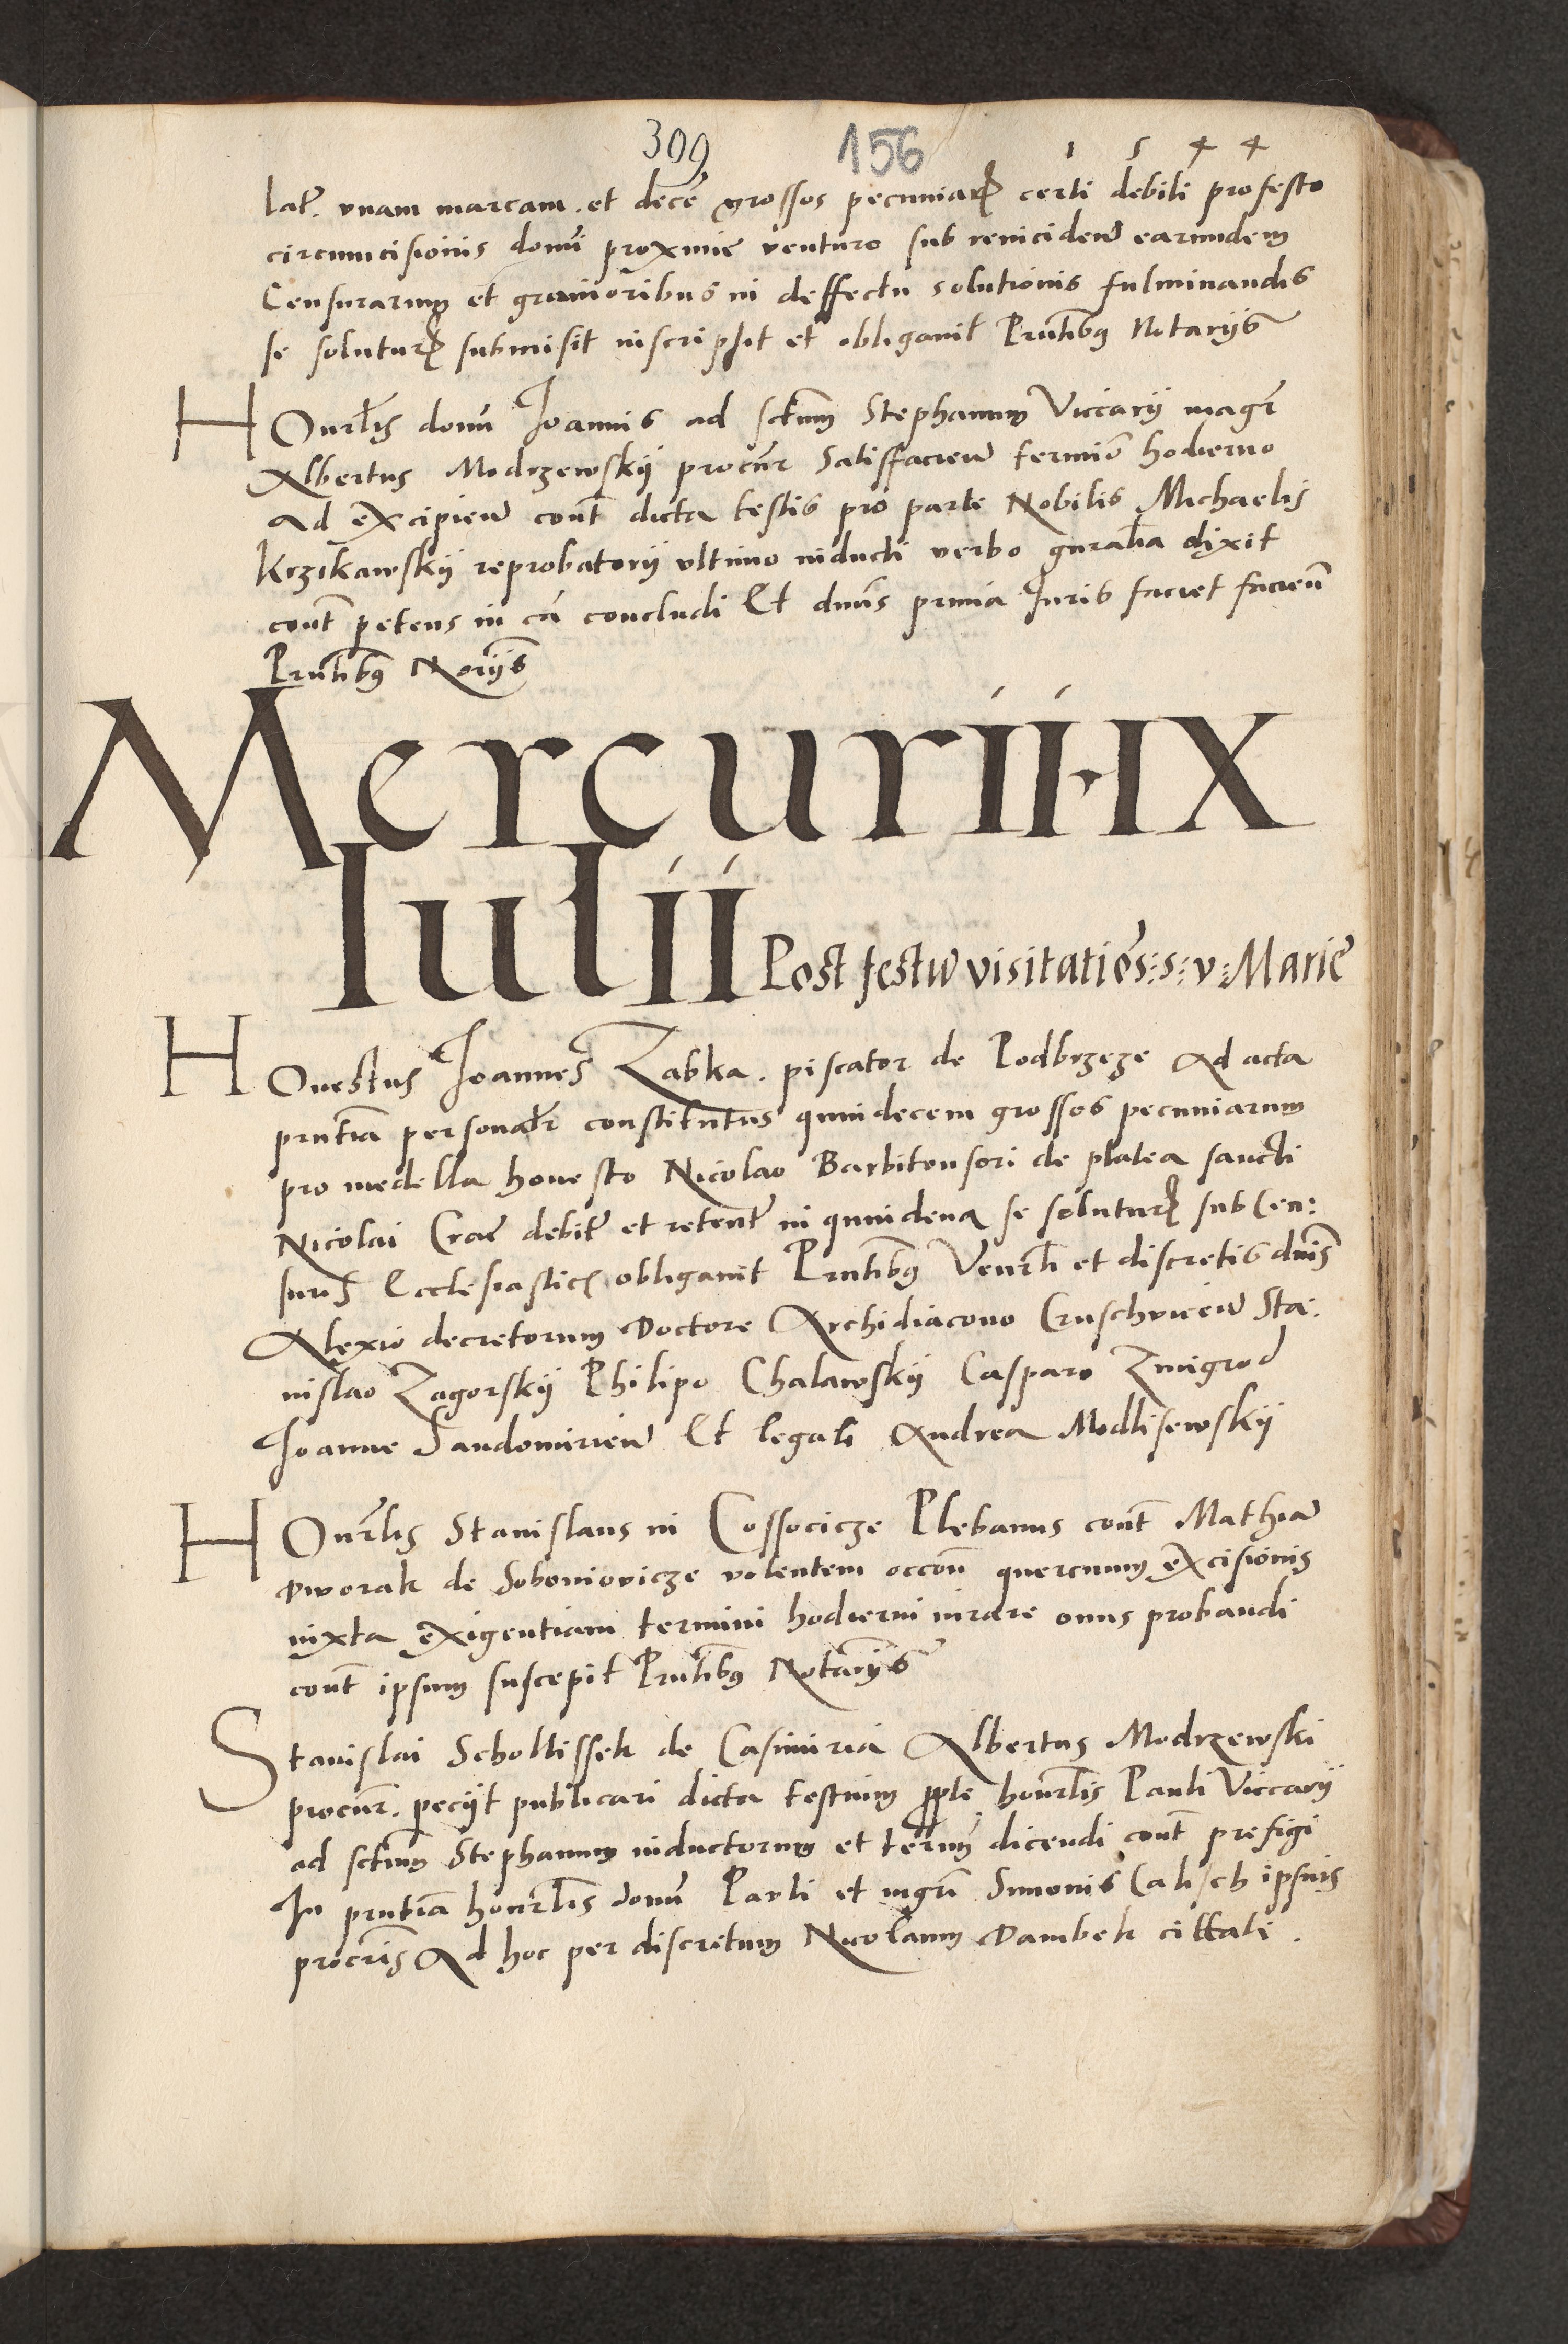 309 156 1 5 4 4
latr. vnam marcam. et decē grossos pecuniarꝝ certi debiti pro festo
circumcisionis domī proxime venturo sub reincidenī earundem
Censurarum et gravioribus in deffectu solutionis fulminandis
se soluturꝝ submisit inscripsit et obligavit Pntibꝰ Notarijs
HOnrlis domī Ioannis ad sctum Stephanum Viccarij magr
Albertus Modrzewskij procur Satisfacien termino hodierno
ad excipien cont dicta testis pro parte Nobilis Michaelis
Krzikawskij reprobatorij vltimo inducti verbo gnralia dixit
cont petens in cā concludi Et dnus pronia Iuris faciet facien
Pntibꝰ Norijs
Mercurii·ix
Iulii Post festū visitatiōes:s:v:Marie
HOnestus Ioannes Zabka. piscator de Podbrzeze Ad acta
pntia personalr constitutus quindecem grossos pecuniarum
pro medella honesto Nicolao Barbitonsori de platea sancti
Nicolai Crac debit et retent in quindena se soluturꝝ sub Cen:
suris Ecclesiasticꝭ obligavit Pntibꝰ Venrli et discretis dnis
Alexio decretorum Doctore Archidiacono Cruschvicien Sta:
nislao Zagorskij Philipo Chalawskij Casparo Zmigrod
Ioanne Sandomirien Et legali Andrea Modlisewskij
HOnrlis Stanislaus in Cossocicze Plebanus cont Mathiam
Dworak de Soboniovicze volentem occon quercuum excisionis
iuxta exigentiam termini hodierni iurare onus probandi
cont ipsum suscepit Pntibꝰ Notarijs
Stanislai Scholtissek de Casimiria Albertus Modrzewski
procur. peciit publicari dicta testium pple honrlis Pauli Viccarij
ad sctum Stephanum inductorum et termī dicendi cont prefigi
In pntia honrlis domī Pauli et mgri Simonis Calisch ipsius
procris Ad hoc per discretum Nicolaum Dambek cittati.